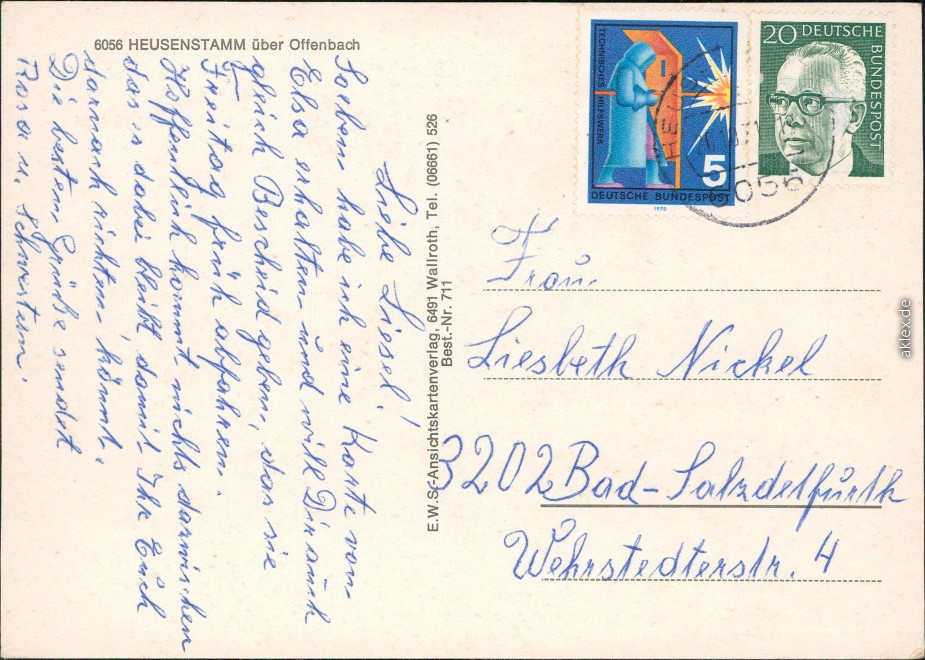 6056 HEUSENSTAMM über Offenbach
Liebe Liesel!
Soeben habe ich eine Karte von
Elsa erhalten und will Dir auch
gleich Bescheid geben, das sie
Freitag früh abfahren.
Hoffentlich kommt nichts darwischen
das es dabei bleibt damit Ihr Euch
darnach richten könnt.
Die besten Grüße sendet
Rosa u. Schwestern.
E.W.S.-Ansichtskartenverlag, 6491 Wallroth, Tel. (06661) 526
Best.-Nr. 711
TECHNISCHES HILFSWERK
5
DEUTSCHE BUNDESPOST
1970
20 DEUTSCHE
BUNDESPOST
6056
Frau
Liesbeth Nickel
3202 Bad-Salzdetfurth
Wehrstedterstr. 4
aklex.de